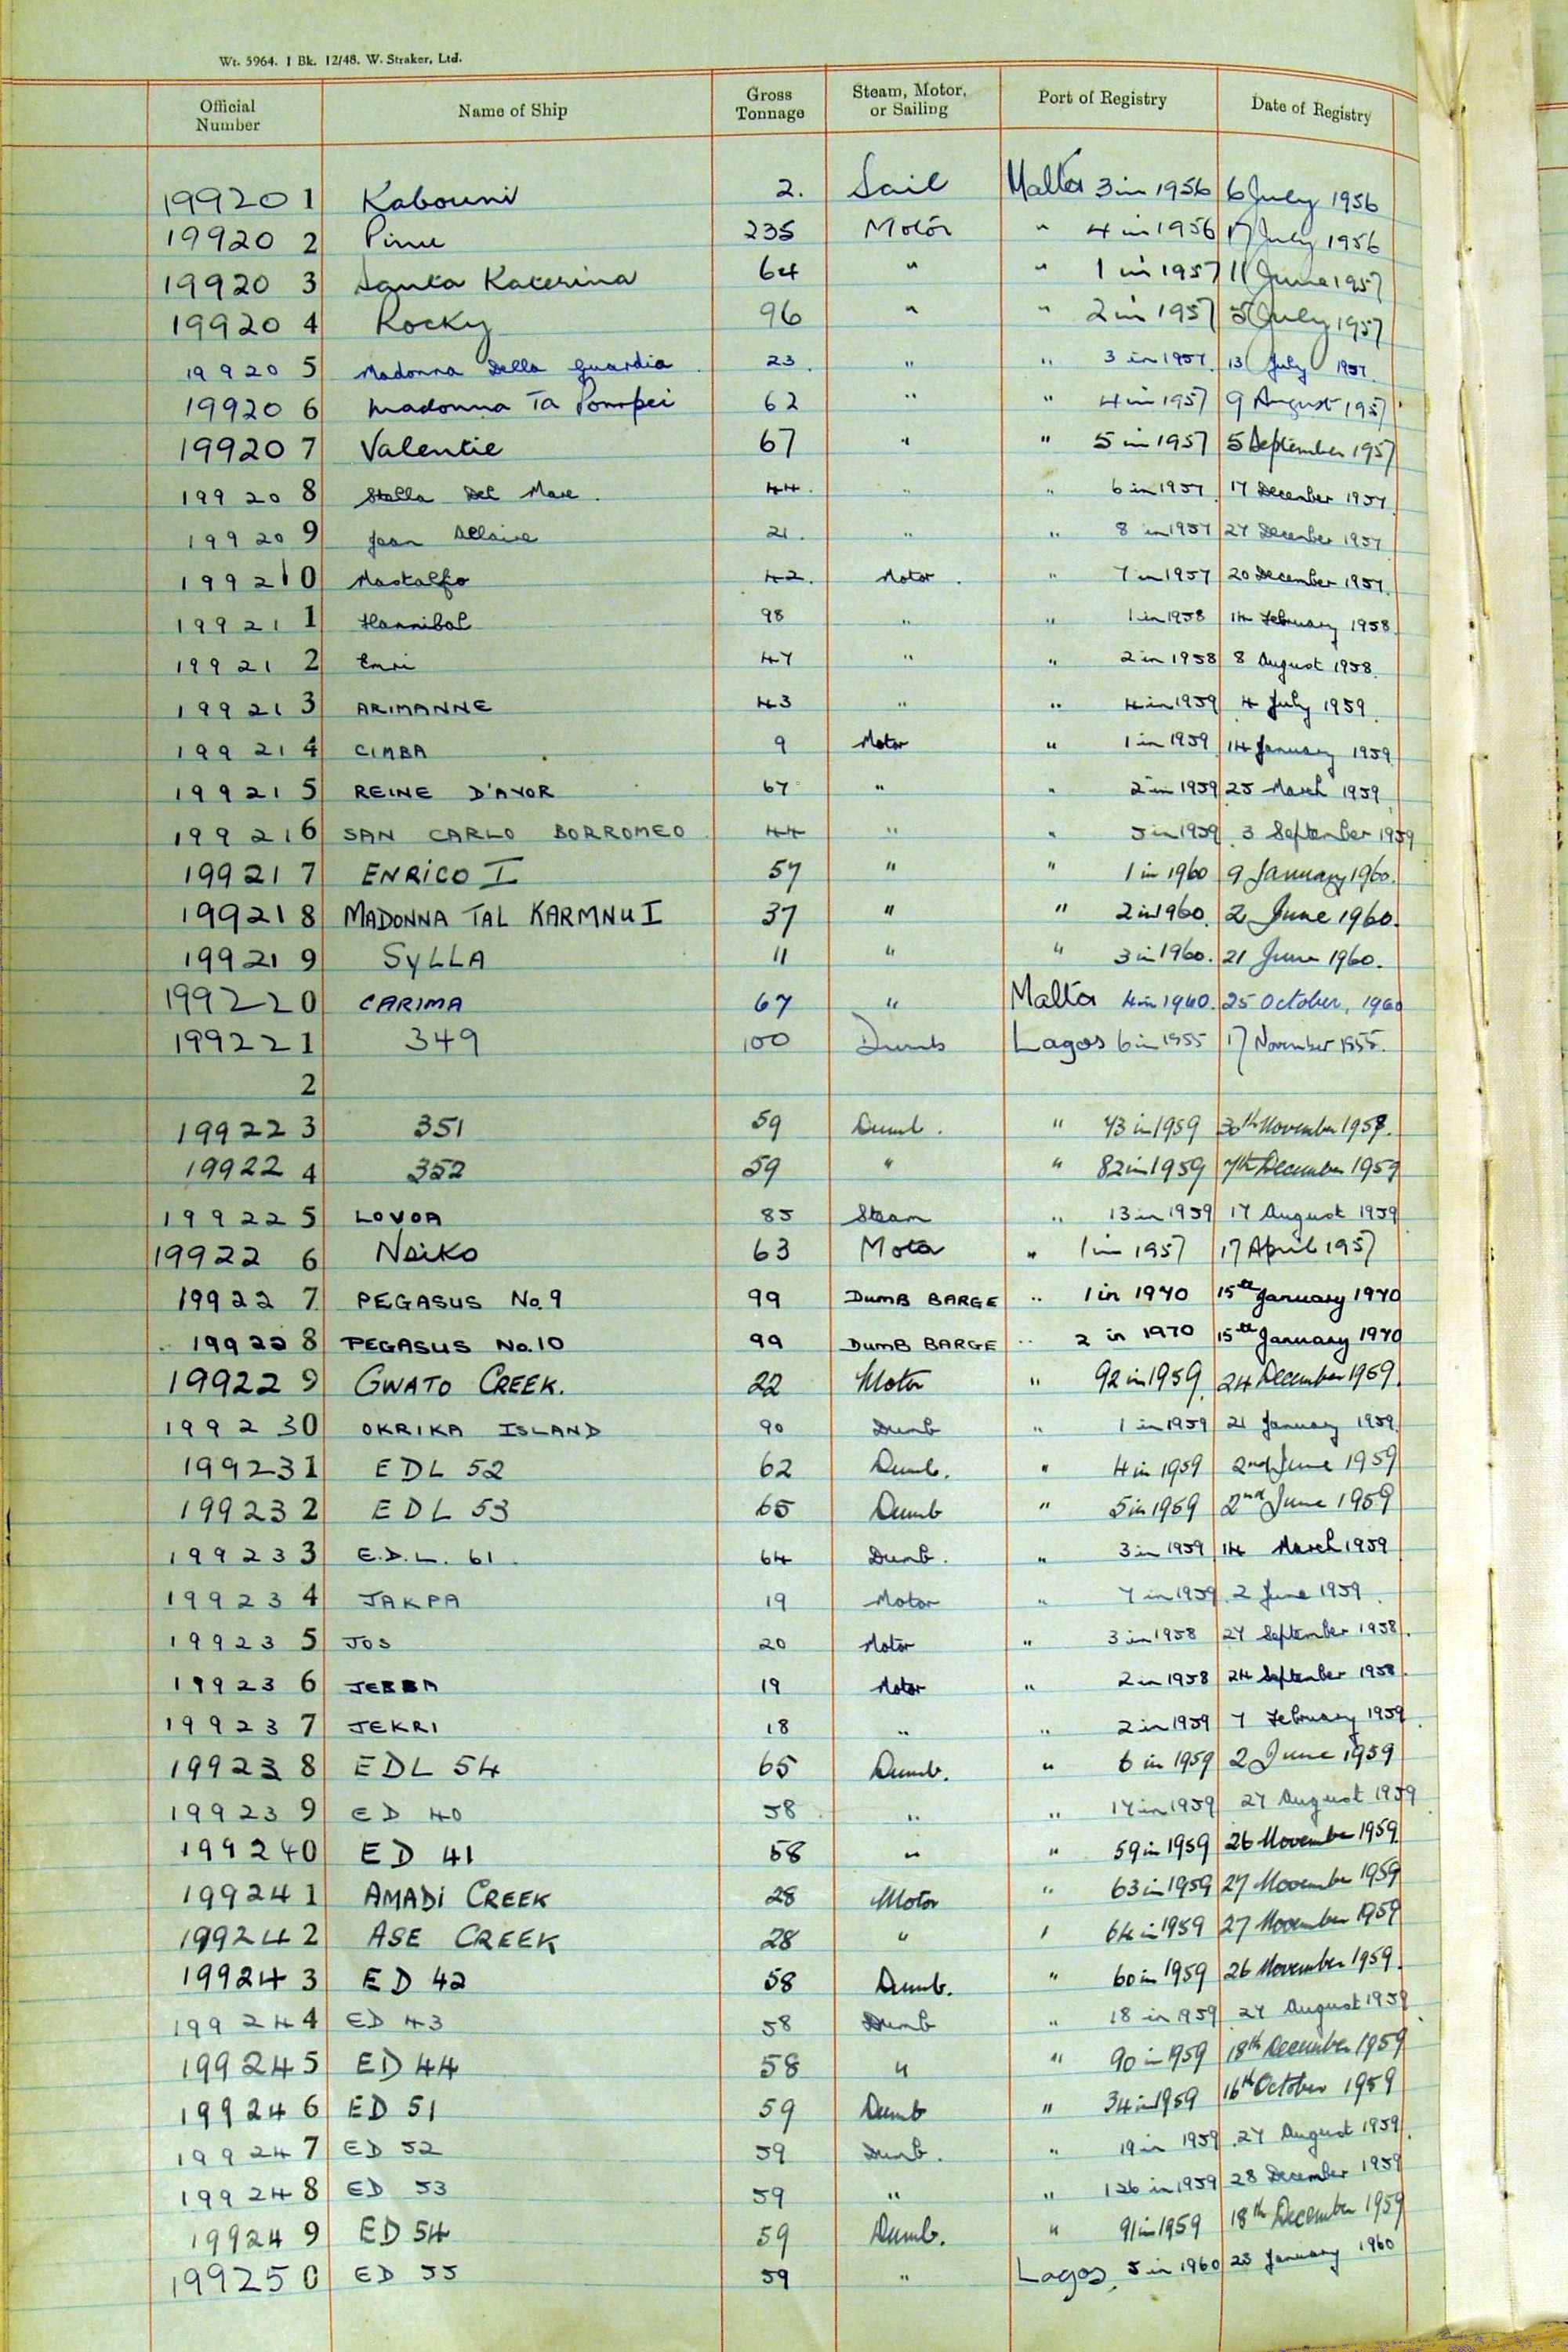 Wt. 5964. 1 Bk. 12/48. W. Straker, Ltd.
Official Number Name of Ship Gross Tonnage Steam, Motor, or Sailing Port of Registry Date of Registry
199201 Kabouni 2. Sail Malta 3 in 1956 6 July 1956
199202 235 Motor " 4 in 1956 17 July 1956
199203 Santa Katerina 64 " " 1 in 1957 11 June 1957
199204 Rocky 96 " " 2 in 1957 5 July 1957
199205 Madonna Della Guardia 23. " " 3 in 1957. 13 July 1957.
199206 Madonna Ta Pompei 62 " " 4 in 1957 9 August 1957
199207 Valentie 67 " " 5 in 1957 5 September 1957
199208 Stella Del Mare. 44. " " 6 in 1957. 17 December 1957.
199209 Jean 21. " " 8 in 1957 27 December 1957
199210 Mastalfo 42. Motor. " 7 in 1957 20 December 1957.
199211 Hannibal 98 " " 1 in 1958 14 February 1958.
199212 Enri 47 " " 2 in 1958 8 August 1958.
199213 ARIMANNE 43 " " 4 in 1959 4 July 1959.
199214 CIMBA 9 Motor " 1 in 1959 14 January 1959.
199215 REINE D'AVOR 67 " " 2 in 1959 25 March 1959
199216 SAN CARLO BORROMEO 44 " " 5 in 1959 3 September 1959
199217 ENRICO I 57 " " 1 in 1960 9 January 1960.
199218 MADONNA TAL KARMNU I 37 " " 2 in 1960. 2 June 1960.
199219 SYLLA 11 " " 3 in 1960. 21 June 1960.
199220 CARIMA 67 " Malta 4 in 1960. 25 October, 1960
199221 349 100 Dumb Lagos 6 in 1955 17 November 1955.
2
199223 351 59 Dumb. " 73 in 1959 30th November 1959.
199224 352 59 " " 82 in 1959 7th December 1959
199225 LOVOA 85 Steam " 13 in 1959 17 August 1959
199226 Neiko 63 Motor " 1 in 1957 17 April 1957
199227 PEGASUS No. 9 99 DUMB BARGE " 1 in 1970 15th January 1970
199228 PEGASUS No. 10 99 DUMB BARGE " 2 in 1970 15th January 1970
199229 GWATO CREEK. 22 Motor " 92 in 1959. 24 December 1959.
199230 OKRIKA ISLAND 90 Dumb " 1 in 1959 21 January 1959.
199231 EDL 52 62 Dumb. " 4 in 1959 2nd June 1959
199232 EDL 53 65 Dumb " 5 in 1959 2nd June 1959
199233 E.D.L. 61. 64 Dumb. " 3 in 1959 14 March 1959
199234 JAKPA 19 Motor " 7 in 1959. 2 June 1959.
199235 JOS 20 Motor " 3 in 1958 27 September 1958.
199236 JEBBA 19 Motor " 2 in 1958 24 September 1958.
199237 JEKRI 18 " " 2 in 1959 7 February 1959.
199238 EDL 54 65 Dumb. " 6 in 1959 2 June 1959
199239 ED 40 58 " " 17 in 1959 27 August 1959
199240 ED 41 58 " " 59 in 1959 26 November 1959
199241 AMADI CREEK 28 Motor " 63 in 1959 27 November 1959
199242 ASE CREEK 28 " " 64 in 1959 27 November 1959
199243 ED 42 58 Dumb. " 60 in 1959 26 November 1959.
199244 ED 43 58 Dumb " 18 in 1959 27 August 1959
199245 ED 44 58 " " 90 in 1959 18th December 1959
199246 ED 51 59 Dumb " 34 in 1959 16th October 1959
199247 ED 52 59 Dumb. " 19 in 1959. 27 August 1959.
199248 ED 53 59 " " 126 in 1959 28 December 1959
199249 ED 54 59 Dumb. " 91 in 1959 18th December 1959
199250 ED 55 59 " Lagos. 5 in 1960 23 January 1960